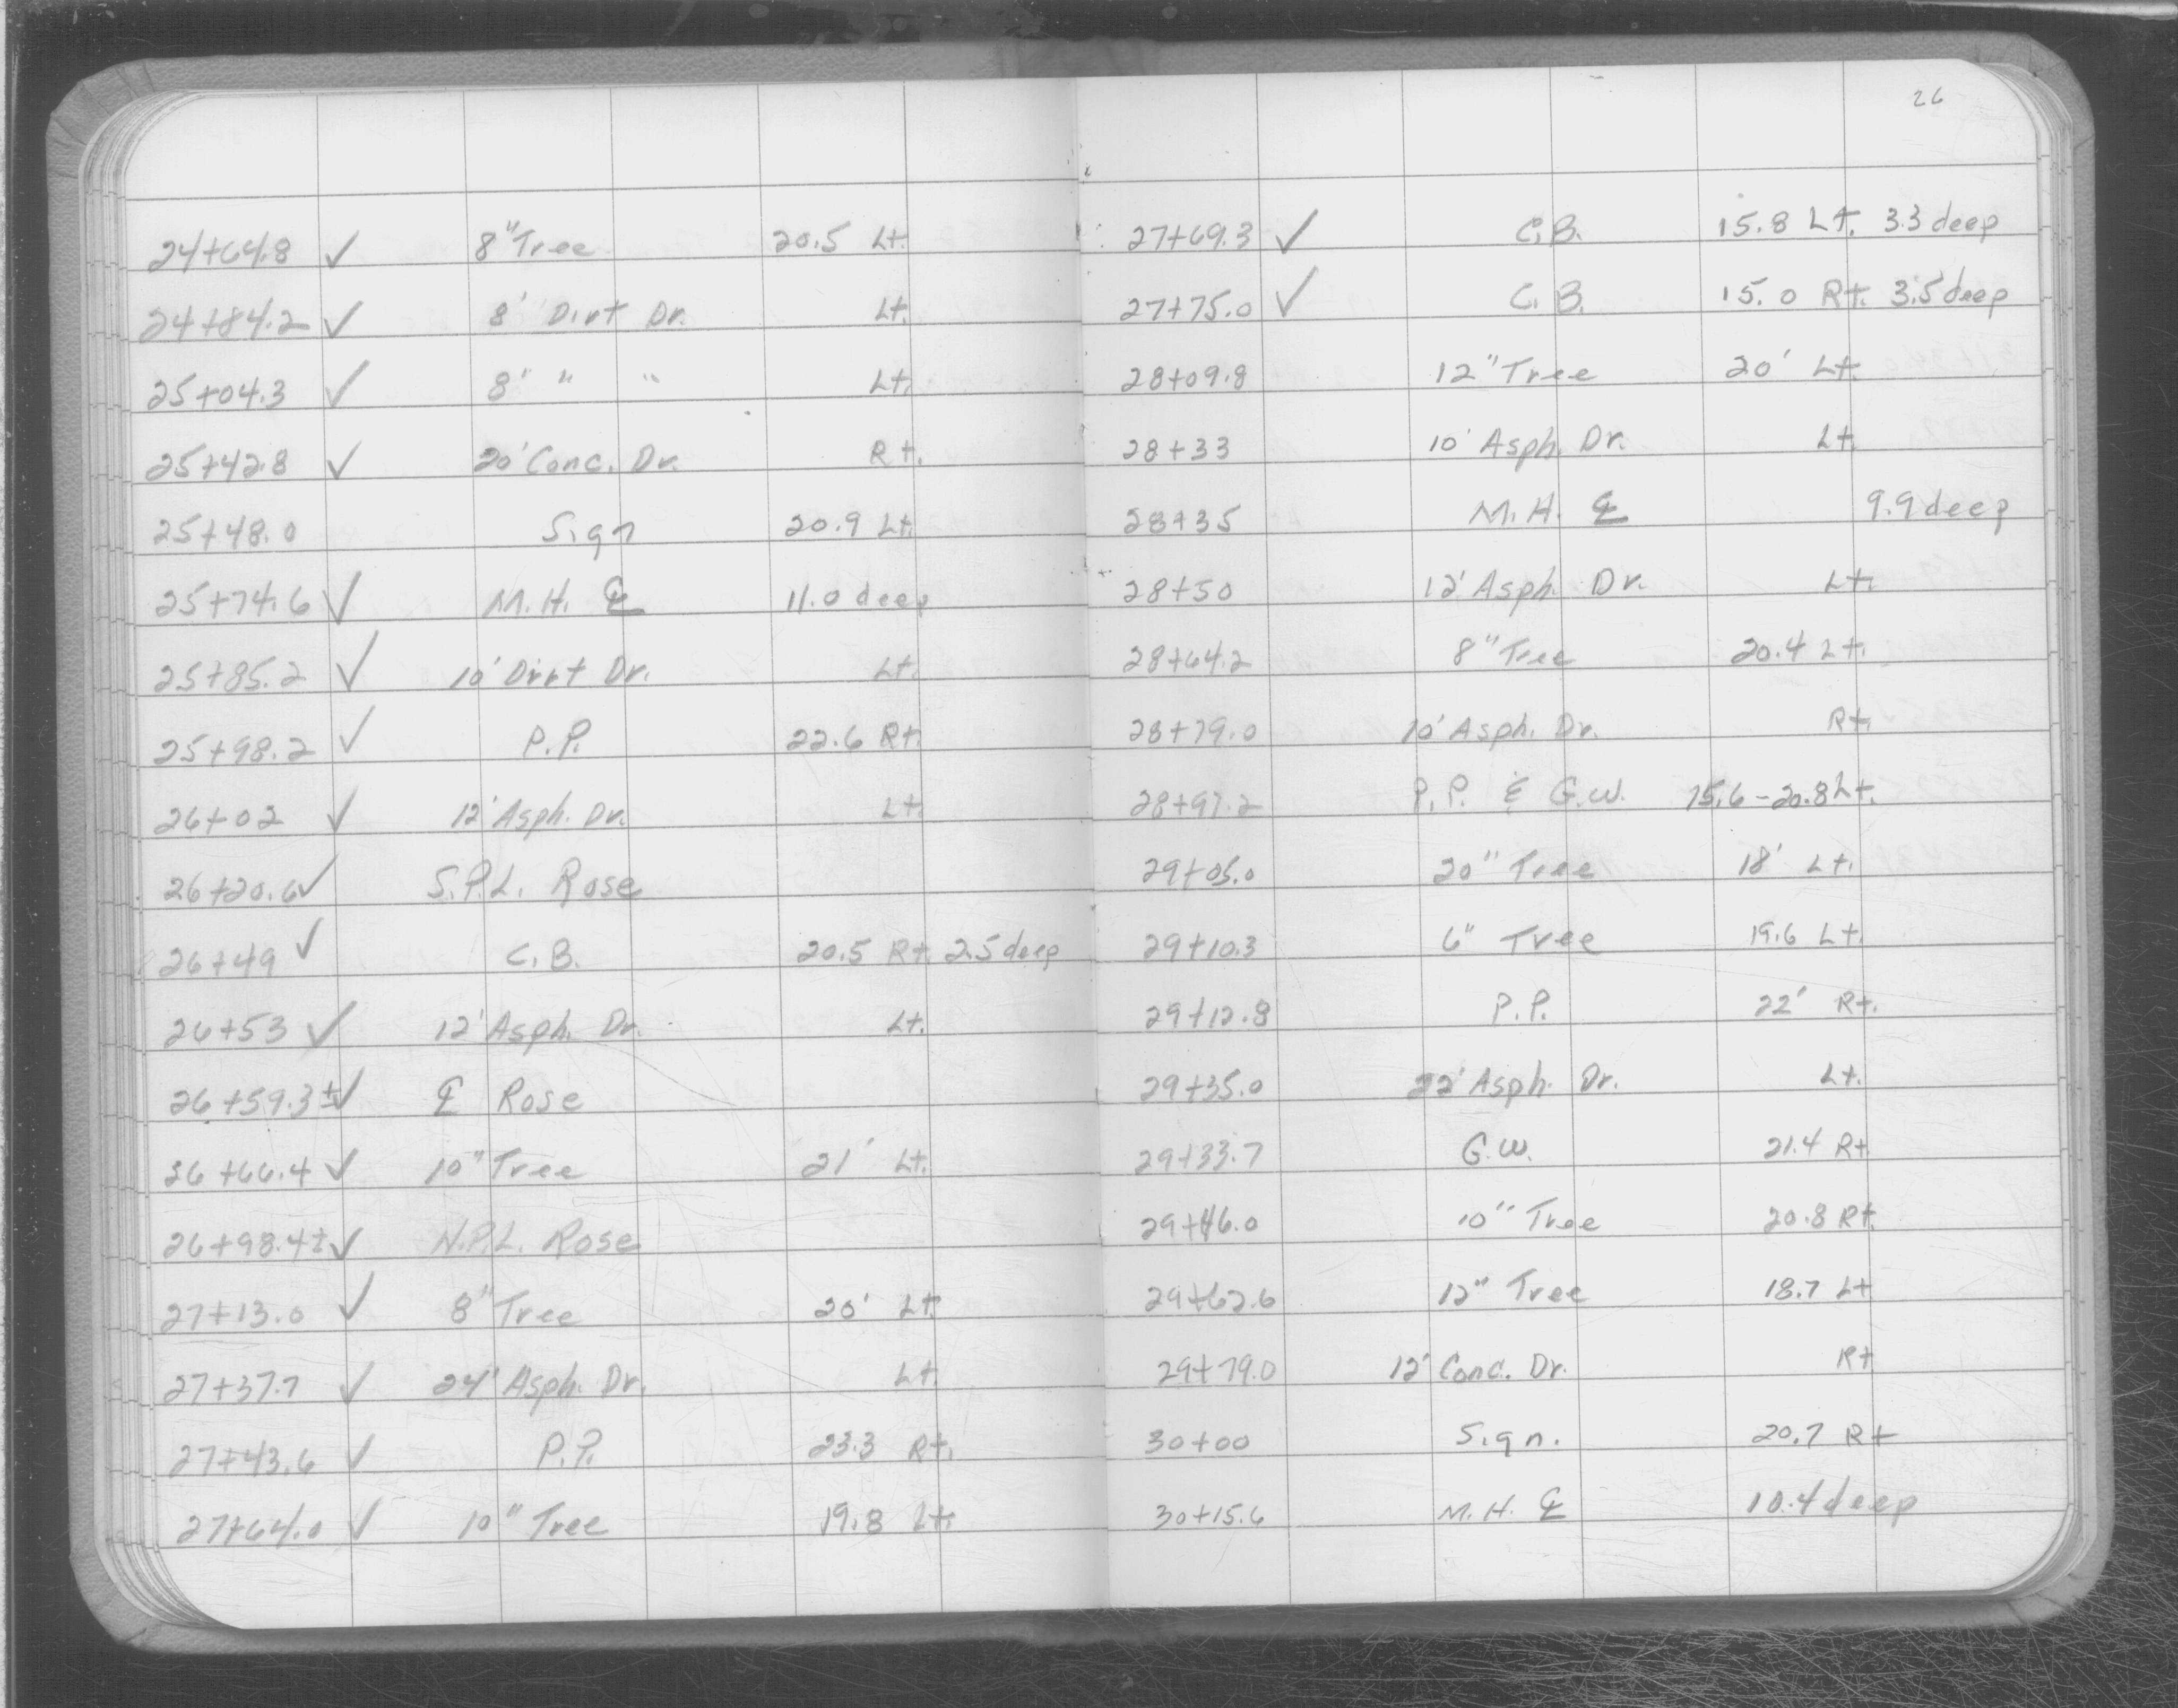 26
24+64.8 ✓ 8" Tree 20.5 Lt.
24+84.2 ✓ 8' Dirt Dr. Lt.
25+04.3 ✓ 8' " " Lt.
25+42.8 ✓ 20' Conc. Dr. Rt.
25+48.0 Sign 20.9 Lt.
25+74.6 ✓ M.H. ℄ 11.0 deep
25+85.2 ✓ 10' Dirt Dr. Lt.
25+98.2 ✓ P.P. 22.6 Rt.
26+02 ✓ 12' Asph. Dr. Lt.
26+20.6 ✓ S.P.L. Rose
26+49 ✓ C.B. 20.5 Rt. 2.5 deep
26+53 ✓ 12' Asph. Dr. Lt.
26+59.3± ✓ ℄ Rose
26+66.4 ✓ 10" Tree 21' Lt.
26+98.4± ✓ N.P.L. Rose
27+13.0 ✓ 8" Tree 20' Lt.
27+37.7 ✓ 24' Asph. Dr. Lt.
27+43.6 ✓ P.P. 23.3 Rt.
27+64.0 ✓ 10" Tree 19.8 Lt.
27+69.3 ✓ C.B. 15.8 Lt. 3.3 deep
27+75.0 ✓ C.B. 15.0 Rt. 3.5 deep
28+09.8 12" Tree 20' Lt.
28+33 10' Asph. Dr. Lt.
28+35 M.H. ℄ 9.9 deep
28+50 12' Asph. Dr. Lt.
28+64.2 8" Tree 20.4 Lt.
28+79.0 10' Asph. Dr. Rt.
28+97.2 P.P. & G.W. 15.6-20.8 Lt.
29+05.0 20" Tree 18' Lt.
29+10.3 6" Tree 19.6 Lt.
29+12.8 P.P. 22' Rt.
29+35.0 22' Asph. Dr. Lt.
29+33.7 G.W. 21.4 Rt
29+46.0 10" Tree 20.8 Rt.
29+62.6 12" Tree 18.7 Lt
29+79.0 12' Conc. Dr. Rt
30+00 Sign. 20.7 Rt
30+15.6 M.H. ℄ 10.4 deep